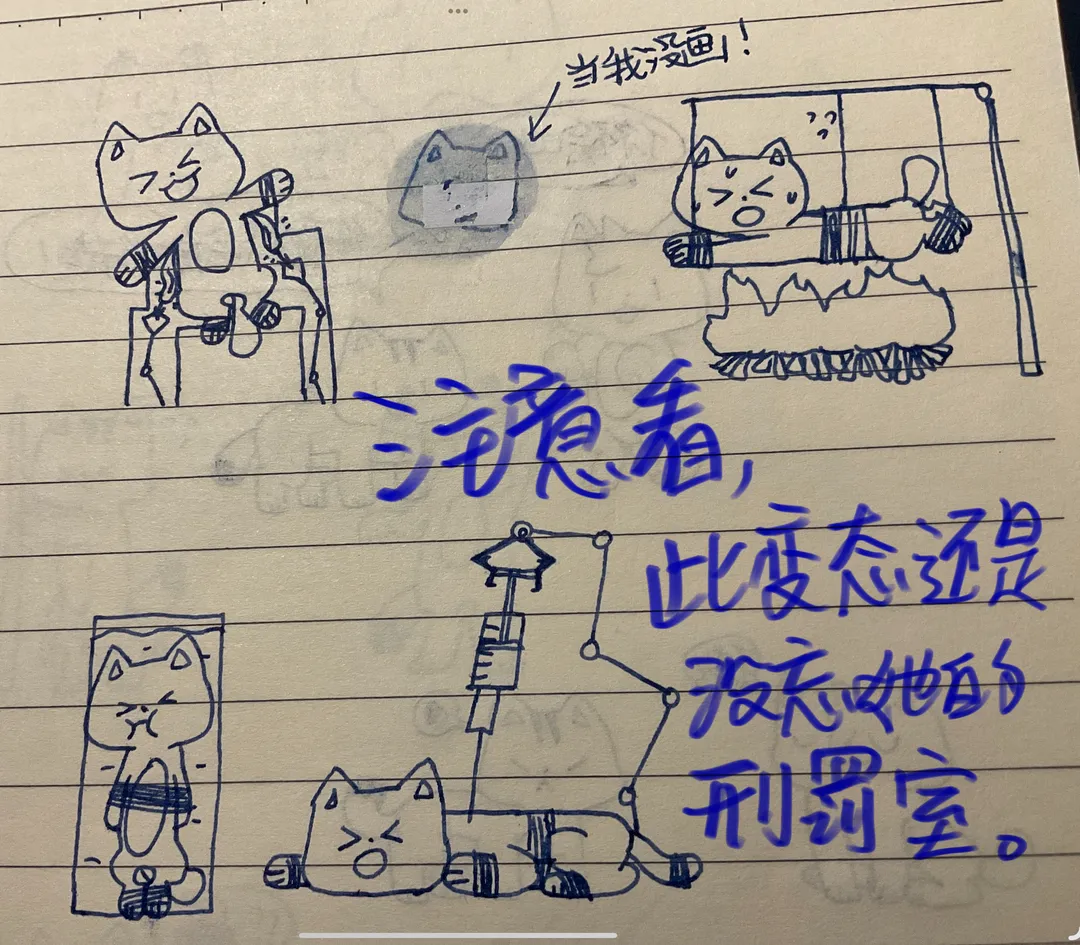 当我没画！
注意看，
此变态还是
没忘她的
刑罚室。